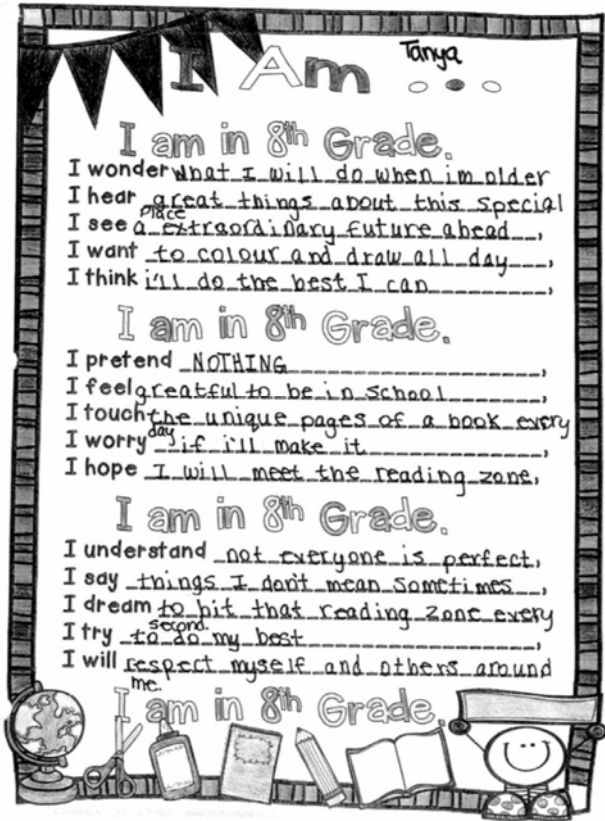 Tanya
I Am ...
I am in 8th Grade.
I wonder what I will do when im older
I hear great things about this special
place
I see a extraordinary future ahead,
I want to colour and draw all day,
I think i'll do the best I can,
I am in 8th Grade.
I pretend NOTHING,
I feel greatful to be in school,
I touch the unique pages of a book every
day
I worry if i'll make it,
I hope I will meet the reading zone,
I am in 8th Grade.
I understand not everyone is perfect,
I say things I don't mean sometimes,
I dream to hit that reading zone every
second.
I try to do my best,
I will respect myself and others around
me.
I am in 8th Grade.